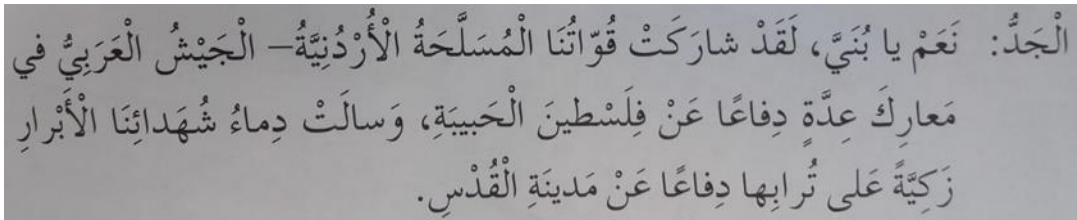 الْجَدُّ: نَعَمْ يا بُنَيَّ، لَقَدْ شارَكَتْ قُوّاتُنَا الْمُسَلَّحَةُ الْأُرْدُنِيَّةُ– الْجَيْشُ الْعَرَبِيُّ في
مَعارِكَ عِدَّةٍ دِفاعًا عَنْ فِلَسْطينَ الْحَبيبَةِ، وَسالَتْ دِماءُ شُهَدائِنَا الْأَبْرارِ
زَكِيَّةً عَلى تُرابِها دِفاعًا عَنْ مَدينَةِ الْقُدْسِ.